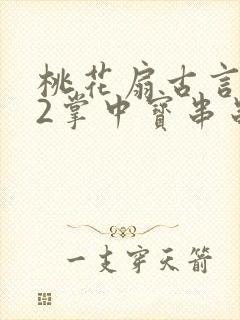 桃花扇古言
2掌中寶串
一支穿天箭